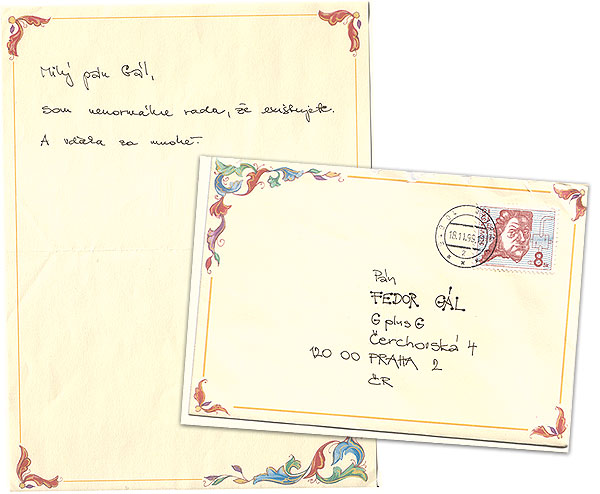 Milý pán Gál,
som nenormálne rada, že existujete.
A vďaka za mnohé.
8 Sk
Pán
FEDOR GÁL
G plus G
Čerchovská 4
120 00 PRAHA 2
ČR